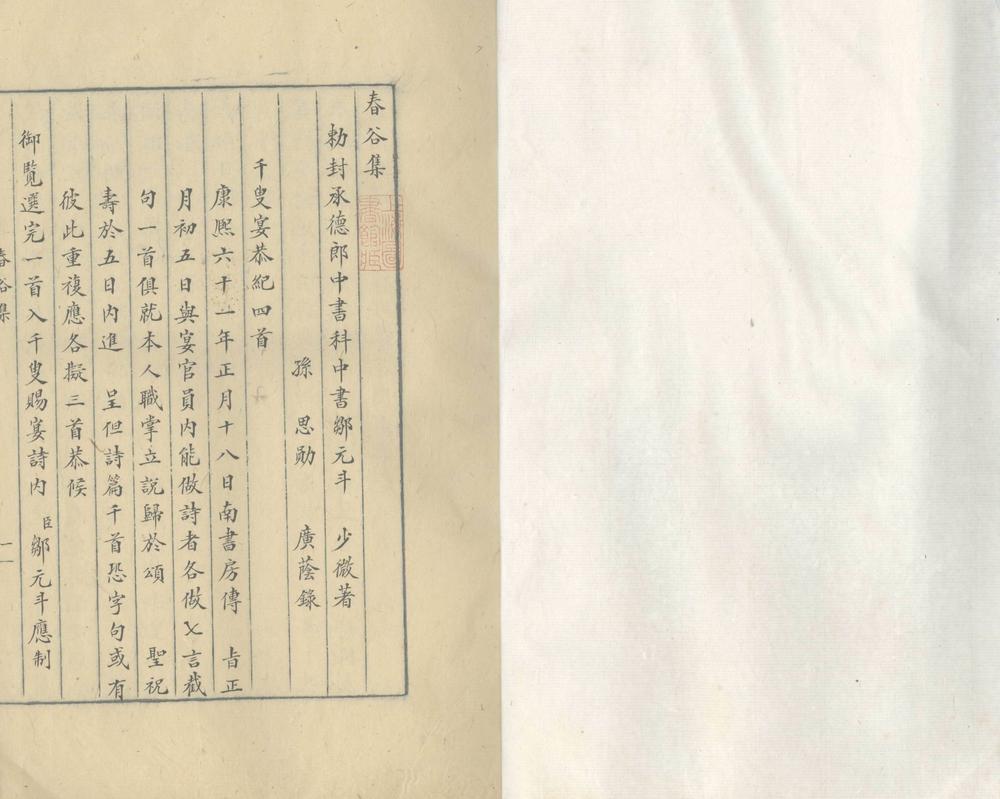 春谷集
勅封承德郎中書科中書鄒元斗 少微著
孫 思勛 廣蔭錄
千叟宴恭紀四首
康熙六十一年正月十八日南書房傳 旨正
月初五日與宴官員内能做詩者各做七言截
句一首俱就本人職掌立說歸於頌 聖祝
壽於五日内進 呈但詩篇千首恐字句或有
彼此重複應各擬三首恭候
御覽選完一首入千叟賜宴詩内 臣鄒元斗應制
春谷集
一